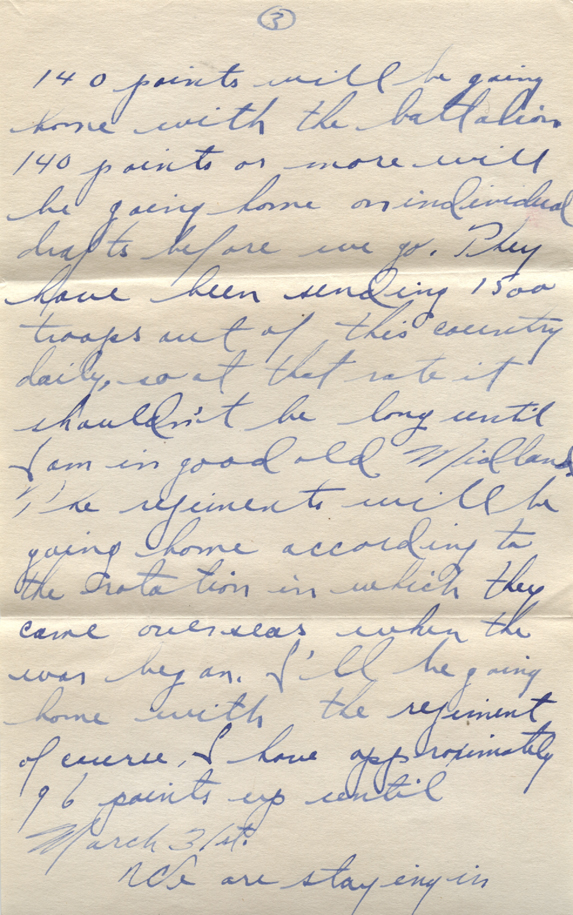 3
140 points will be going
home with the battalion
140 points or more will
be going home on individual
drafts before we go. They
have been sending 1500
troops out of this country
daily, so at that rate it
shouldn't be long until
I am in good old Midland
The regiments will be
going home according to
the rotation in which they
came overseas when the
war began. I'll be going
home with the regiment
of course, I have approximately
96 points up until
March 31st.
We are staying in